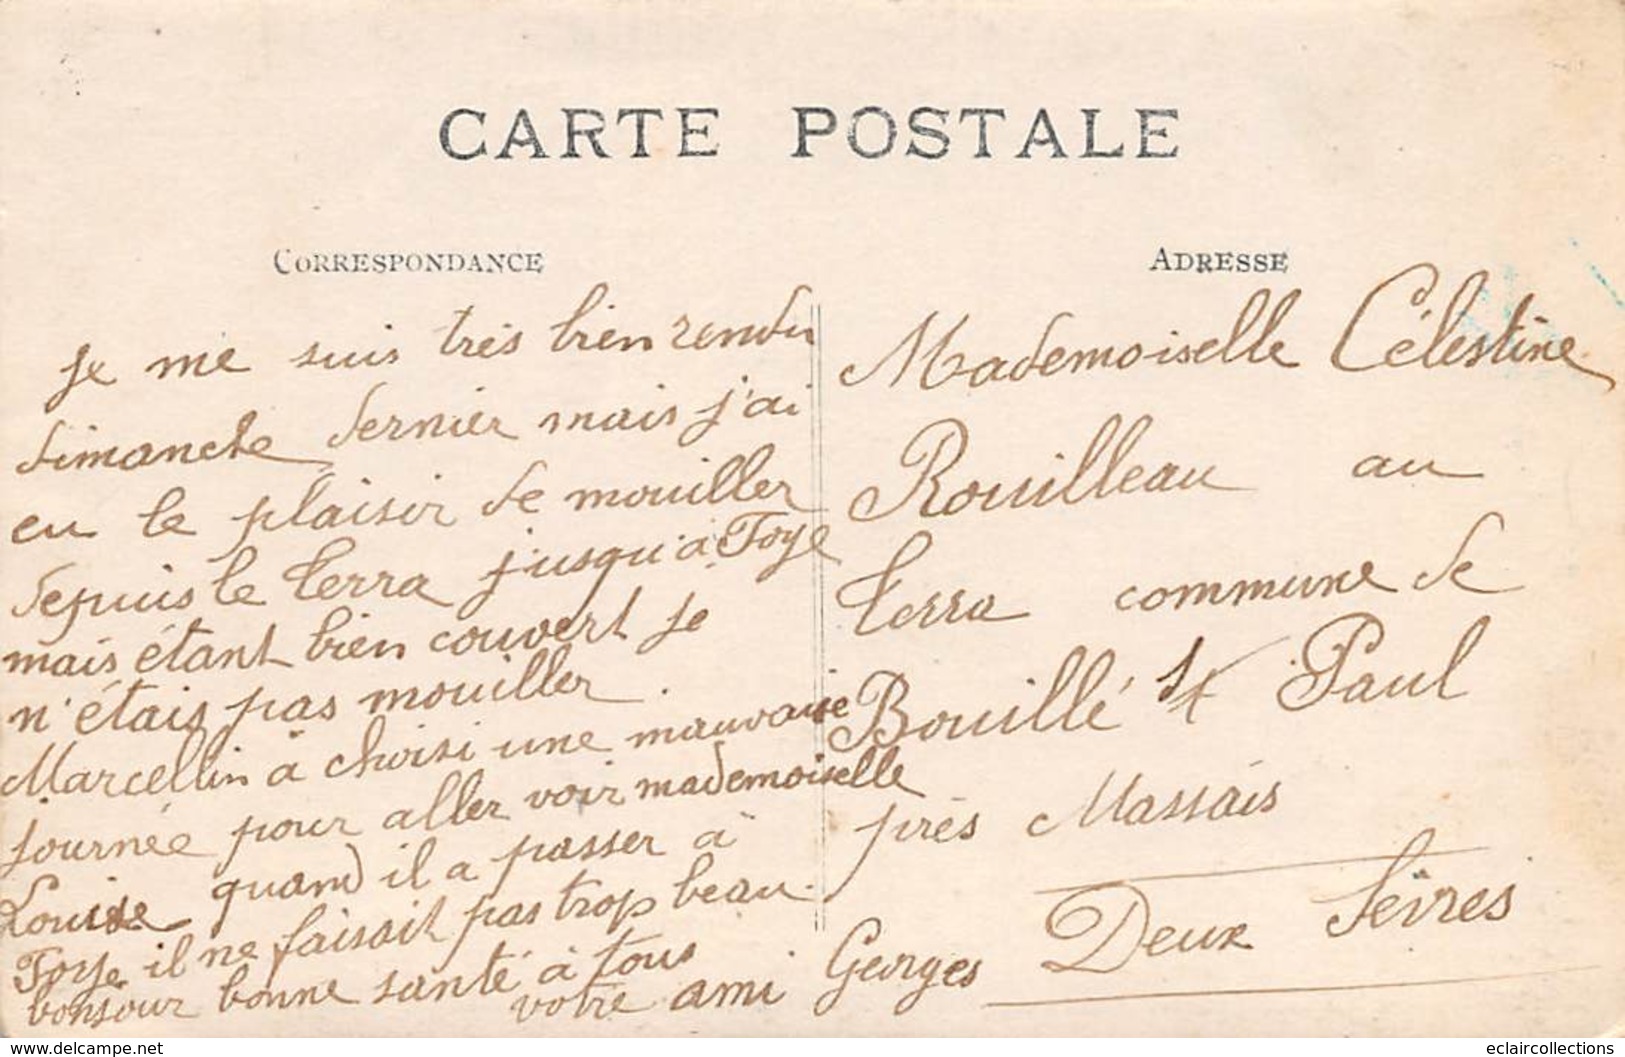 CARTE POSTALE
CORRESPONDANCE
je me suis très bien rendu
dimanche dernier mais j'ai
eu le plaisir de mouiller
depuis le terra jusqu'à Foye
mais étant bien couvert je
n'étais pas mouiller.
Marcellin à choisi une mauvaise
journée pour aller voir mademoiselle
Louise quand il a passer à
Foye il ne faisait pas trop beau.
bonsoir bonne santé à tous
votre ami Georges
ADRESSE
Mademoiselle Célestine
Rouilleau au
terra commune de
Bouillé St Paul
près Massais
Deux Sèvres
www.delcampe.net
eclaircollections